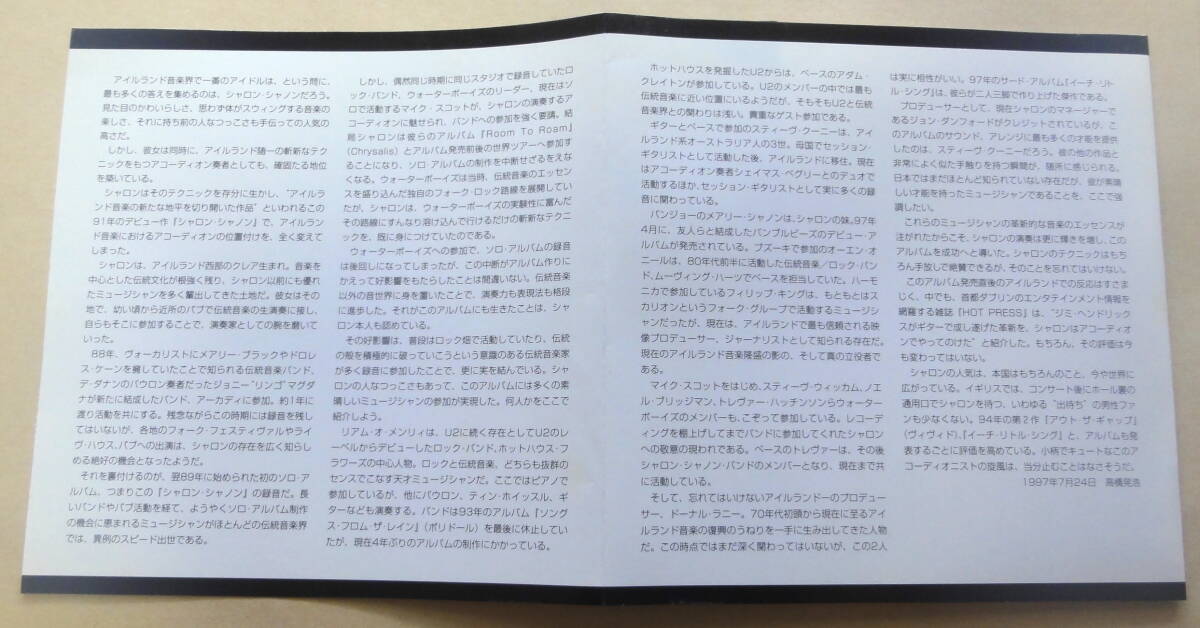 アイルランド音楽界で一番のアイドルは、という問に、
最も多くの答えを集めるのは、シャロン・シャノンだろう。
見た目のかわいらしさ、思わず体がスウィングする音楽の
楽しさ、それに持ち前の人なつっこさも手伝っての人気の
高さだ。
しかし、彼女は同時に、アイルランド随一の斬新なテク
ニックをもつアコーディオン奏者としても、確固たる地位
を築いている。
シャロンはそのテクニックを存分に生かし、"アイルラ
ンド音楽の新たな地平を切り開いた作品"といわれるこの
91年のデビュー作『シャロン・シャノン』で、アイルラン
ド音楽におけるアコーディオンの位置付けを、全く変えて
しまった。
シャロンは、アイルランド西部のクレア生まれ。音楽を
中心とした伝統文化が根強く残り、シャロン以前にも優れ
たミュージシャンを多く輩出してきた土地だ。彼女はその
地で、幼い頃から近所のパブで伝統音楽の生演奏に接し、
自らもそこに参加することで、演奏家としての腕を磨いて
いった。
88年、ヴォーカリストにメアリー・ブラックやドロレ
ス・ケーンを擁していたことで知られる伝統音楽バンド、
デ・ダナンのバウロン奏者だったジョニー"リンゴ"マクダ
ナが新たに結成したバンド、アーカディに参加。約1年に
渡り活動を共にする。残念ながらこの時期には録音を残し
てはいないが、各地のフォーク・フェスティヴァルやライ
ヴ・ハウス、パブへの出演は、シャロンの存在を広く知らし
める絶好の機会となったようだ。
それを裏付けるのが、翌89年に始められた初のソロ・ア
ルバム、つまりこの『シャロン・シャノン』の録音だ。長
いバンドやパブ活動を経て、ようやくソロ・アルバム制作
の機会に恵まれるミュージシャンがほとんどの伝統音楽界
では、異例のスピード出世である。
しかし、偶然同じ時期に同じスタジオで録音していたロ
ック・バンド、ウォーターボーイズのリーダー、現在はソ
ロで活動するマイク・スコットが、シャロンの演奏するア
コーディオンに魅せられ、バンドへの参加を強く要請。結
局シャロンは彼らのアルバム『Room To Roam』
(Chrysalis)とアルバム発売前後の世界ツアーへ参加す
ることになり、ソロ・アルバムの制作を中断せざるをえな
くなる。ウォーターボーイズは当時、伝統音楽のエッセン
スを盛り込んだ独自のフォーク・ロック路線を展開してい
たが、シャロンは、ウォーターボーイズの実験性に富んだ
その路線にすんなり溶け込んで行けるだけの斬新なテクニ
ックを、既に身につけていたのである。
ウォーターボーイズへの参加で、ソロ・アルバムの録音
は後回しになってしまったが、この中断がアルバム作りに
かえって好影響をもたらしたことは間違いない。伝統音楽
以外の音世界に身を置いたことで、演奏力も表現法も格段
に進歩した。それがこのアルバムにも生きたことは、シャ
ロン本人も認めている。
その好影響は、普段はロック畑で活動していたり、伝統
の殻を積極的に破っていこうという意識のある伝統音楽家
が多く録音に参加したことで、更に実を結んでいる。シャ
ロンの人なつっこさもあって、このアルバムには多くの素
晴しいミュージシャンの参加が実現した。何人かをここで
紹介しよう。
リアム・オ・メンリィは、U2に続く存在としてU2のレ
ーベルからデビューしたロック・バンド、ホットハウス・フ
ラワーズの中心人物。ロックと伝統音楽、どちらも抜群の
センスでこなす天才ミュージシャンだ。ここではピアノで
参加しているが、他にバウロン、ティン・ホイッスル、ギ
ターなども演奏する。バンドは93年のアルバム『ソング
ス・フロム・ザ・レイン』(ポリドール)を最後に休止してい
たが、現在4年ぶりのアルバムの制作にかかっている。
ホットハウスを発掘したU2からは、ベースのアダム・
クレイトンが参加している。U2のメンバーの中では最も
伝統音楽に近い位置にいるようだが、そもそもU2と伝統
音楽界との関わりは浅い。貴重なゲスト参加である。
ギターとベースで参加のスティーヴ・クーニーは、アイ
ルランド系オーストラリア人の3世。母国でセッション・
ギタリストとして活動した後、アイルランドに移住。現在
はアコーディオン奏者シェイマス・ベグリーとのデュオで
活動するほか、セッション・ギタリストとして実に多くの録
音に関わっている。
バンジョーのメアリー・シャノンは、シャロンの妹。97年
4月に、友人らと結成したバンブルビーズのデビュー・ア
ルバムが発売されている。ブズーキで参加のオーエン・オ
ニールは、80年代前半に活動した伝統音楽/ロック・バン
ド、ムーヴィング・ハーツでベースを担当していた。ハーモ
ニカで参加しているフィリップ・キングは、もともとはス
カリオンというフォーク・グループで活動するミュージシ
ャンだったが、現在は、アイルランドで最も信頼される映
像プロデューサー、ジャーナリストとして知られる存在だ。
現在のアイルランド音楽隆盛の影の、そして真の立役者で
ある。
マイク・スコットをはじめ、スティーヴ・ウィッカム、ノエ
ル・ブリッジマン、トレヴァー・ハッチンソンらウォーター
ボーイズのメンバーも、こぞって参加している。レコーデ
ィングを棚上げしてまでバンドに参加してくれたシャロン
への敬意の現われである。ベースのトレヴァーは、その後
シャロン・シャノン・バンドのメンバーとなり、現在まで共
に活動している。
そして、忘れてはいけないアイルランドーのプロデュー
サー、ドーナル・ラニー。70年代初頭から現在に至るアイ
ルランド音楽の復興のうねりを一手に生み出してきた人物
だ。この時点ではまだ深く関わってはいないが、この2人
は実に相性がいい。97年のサード・アルバム『イーチ・リト
ル・シング』は、彼らが二人三脚で作り上げた傑作である。
プロデューサーとして、現在シャロンのマネージャーで
あるジョン・ダンフォードがクレジットされているが、こ
のアルバムのサウンド、アレンジに最も多くの才能を提供
したのは、スティーヴ・クーニーだろう。彼の他の作品と
非常によく似た手触りを持つ瞬間が、随所に感じられる。
日本ではまだほとんど知られていない存在だが、彼が素晴
しい才能を持ったミュージシャンであることを、ここで強
調したい。
これらのミュージシャンの革新的な音楽のエッセンスが
注がれたからこそ、シャロンの演奏は更に輝きを増し、この
アルバムを成功へと導いた。シャロンのテクニックはもち
ろん手放しで絶賛できるが、そのことを忘れてはいけない。
このアルバム発売直後のアイルランドでの反応はすさま
じく、中でも、首都ダブリンのエンタテインメント情報を
網羅する雑誌『HOT PRESS』は、"ジミ・ヘンドリック
スがギターで成し遂げた革新を、シャロンはアコーディオ
ンでやってのけた"と紹介した。もちろん、その評価は今
も変わってはいない。
シャロンの人気は、本国はもちろんのこと、今や世界に
広がっている。イギリスでは、コンサート後にホール裏の
通用口でシャロンを待つ、いわゆる"出待ち"の男性ファ
ンも少なくない。94年の第2作『アウト・ザ・ギャップ』
(ヴィヴィド)、『イーチ・リトル・シング』と、アルバムも発
表するごとに評価を高めている。小柄でキュートなこのア
コーディオニストの旋風は、当分止むことはなさそうだ。
1997年7月24日 高橋晃浩